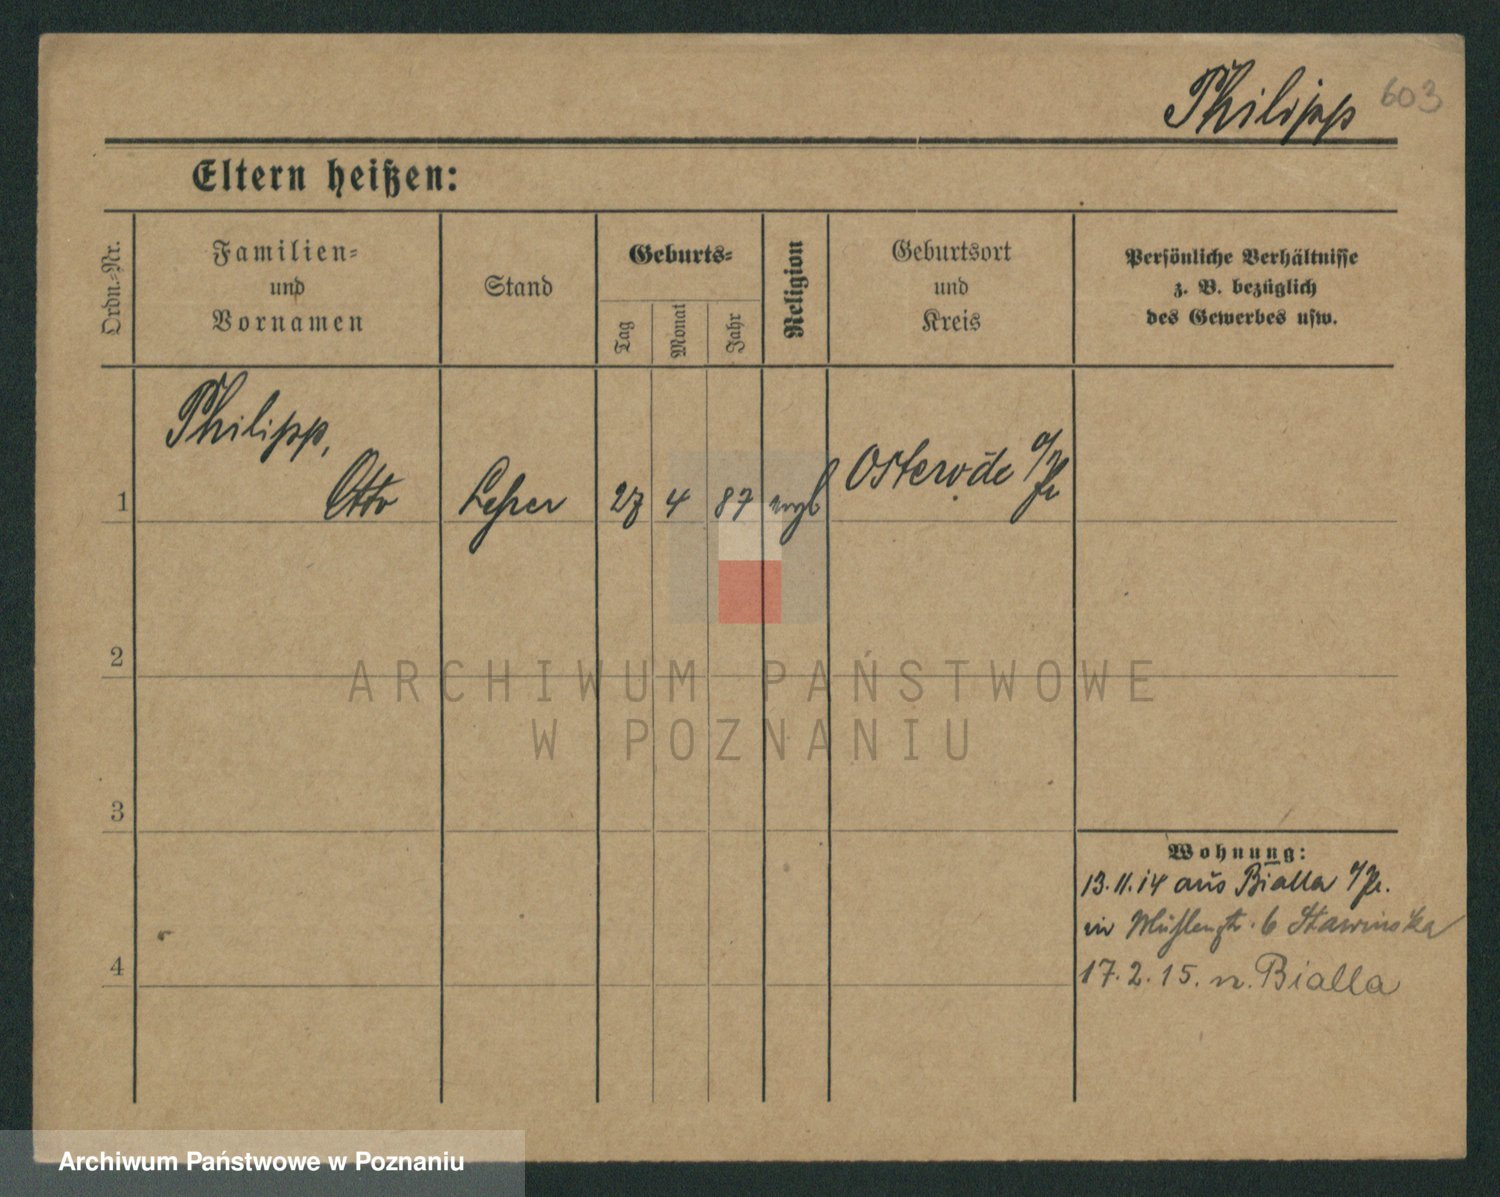 Philipp 603
Eltern heißen:
Ordn.-Nr.
Familien-
und
Vornamen
Stand
Geburts-
Tag
Monat
Jahr
Religion
Geburtsort
und
Kreis
Persönliche Verhältnisse
z. B. bezüglich
des Gewerbes usw.
Philipp,
1 Otto Lehrer 27 4 87 evgl Osterode O/Pr
2
ARCHIWUM PAŃSTWOWE
W POZNANIU
3
Wohnung:
13.11.14 aus Bialla O/Pr.
in Mühlenstr. 6 Stawinska
4
17.2.15. n. Bialla
Archiwum Państwowe w Poznaniu